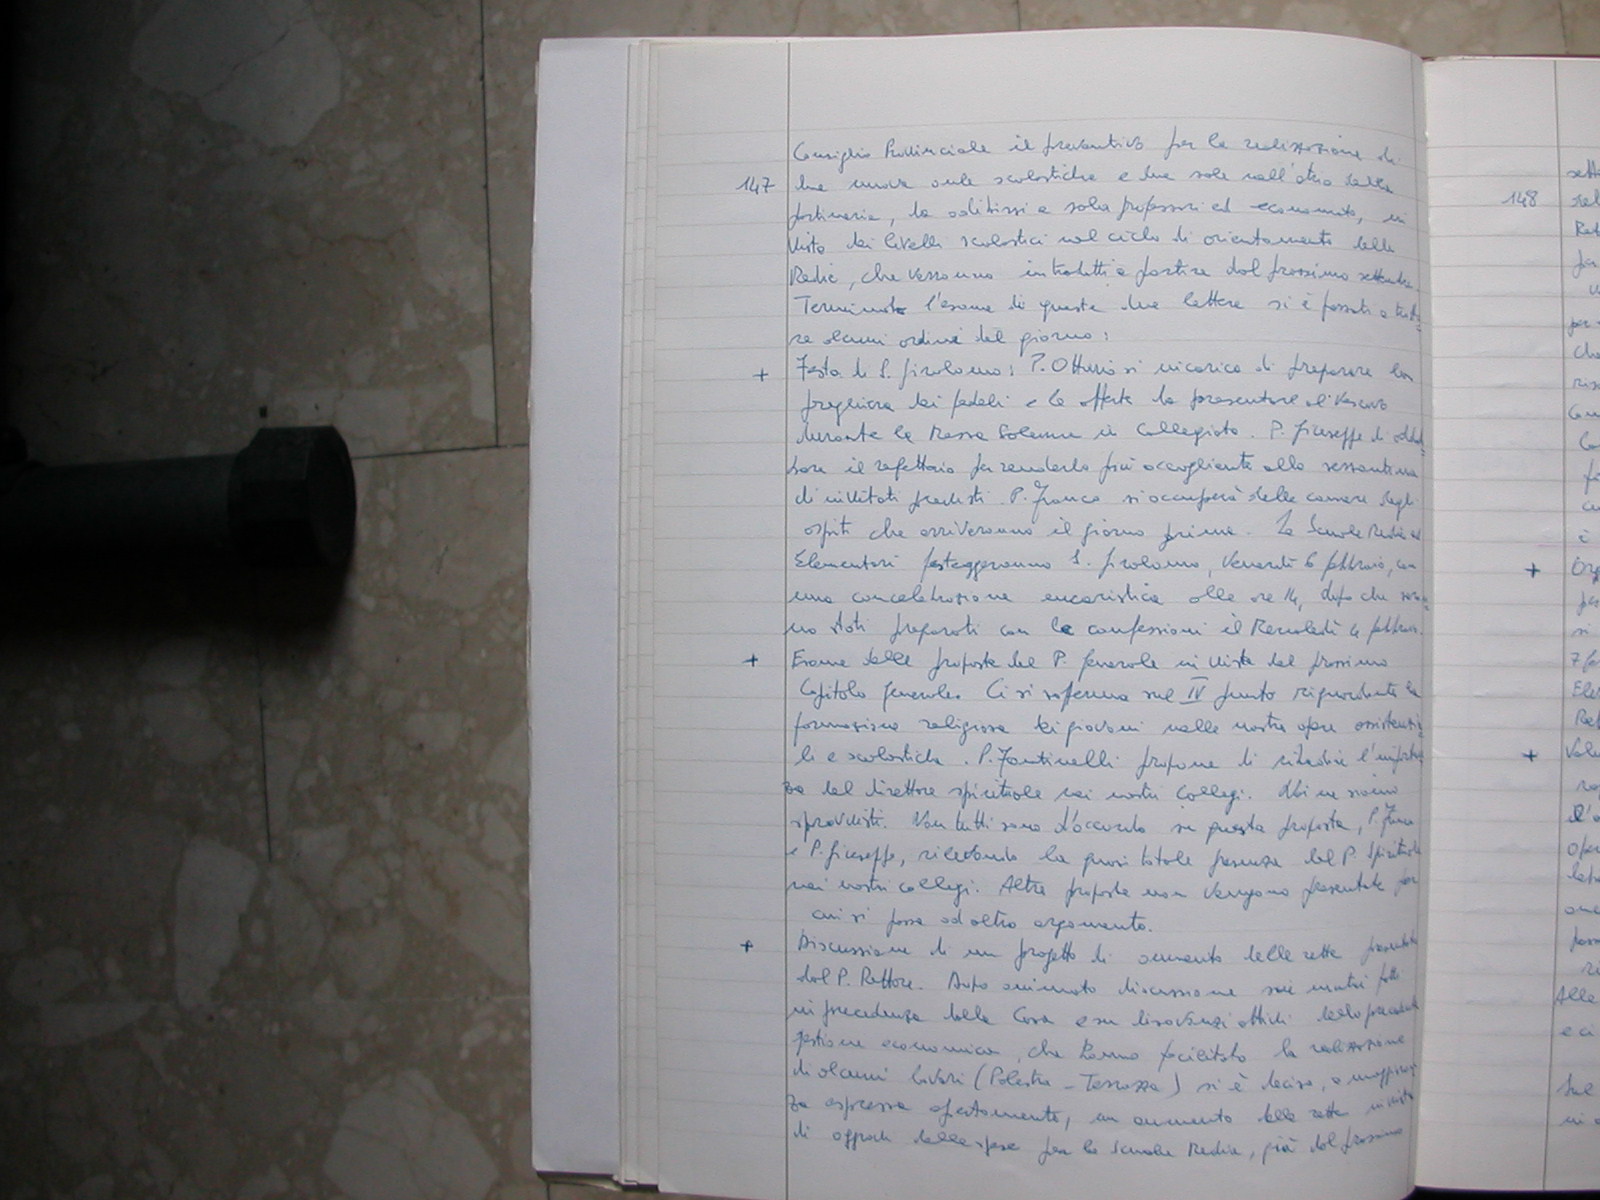 Consiglio Provinciale il preventivo per la realizzazione di
147 due nuove aule scolastiche e due sale nell'atrio della
portineria, da adibirsi a sala professori ed economato, in
vista dei livelli scolastici nel ciclo di orientamento delle
Medie, che verranno introdotti a partire dal prossimo settembre.
Terminato l'esame di queste due lettere si è passati a tratta=
re alcuni ordini del giorno:
+ Festa di S. Girolamo: P. Ottavio si incarica di preparare la
preghiera dei fedeli e le offerte da presentare al Vescovo
durante la Messa Solenne in Collegiata. P. Giuseppe di addob=
bare il refettorio per renderlo più accogliente alla sessantina
di invitati previsti. P. Franco si occuperà delle camere degli
ospiti che arriveranno il giorno prima. Le Scuole Medie ed
Elementari festeggeranno S. Girolamo, Venerdì 6 febbraio, con
una concelebrazione eucaristica alle ore 14, dopo che sara=
nno stati preparati con le confessioni il Mercoledì 4 febbraio.
+ Esame delle proposte del P. Generale in vista del prossimo
Capitolo Generale. Ci si sofferma sul IV punto riguardante la
formazione religiosa dei giovani nelle nostre opere assistenzia=
li e scolastiche. P. Fantinelli propone di ribadire l'importan=
za del direttore spirituale nei nostri Collegi. Noi ne siamo
sprovvisti. Non tutti sono d'accordo su questa proposta, P. Franco
e P. Giuseppe, rilevando la quasi totale assenza del P. Spirituale
nei nostri collegi. Altre proposte non vengono presentate per
cui si passa ad altro argomento.
+ Discussione di un progetto di aumento delle rette presentato
dal P. Rettore. Dopo animata discussione sui mutui fatti
in precedenza dalla Casa e su disavanzi attivi della precedente
gestione economica, che hanno facilitato la realizzazione
di alcuni lavori (Palestra - Terrazza) si è deciso, a maggioran=
za espressa apertamente, un aumento delle rette in vista
di appoch delle spese per le Scuole Medie, già dal prossimo
148
+
+
Alle
e ci